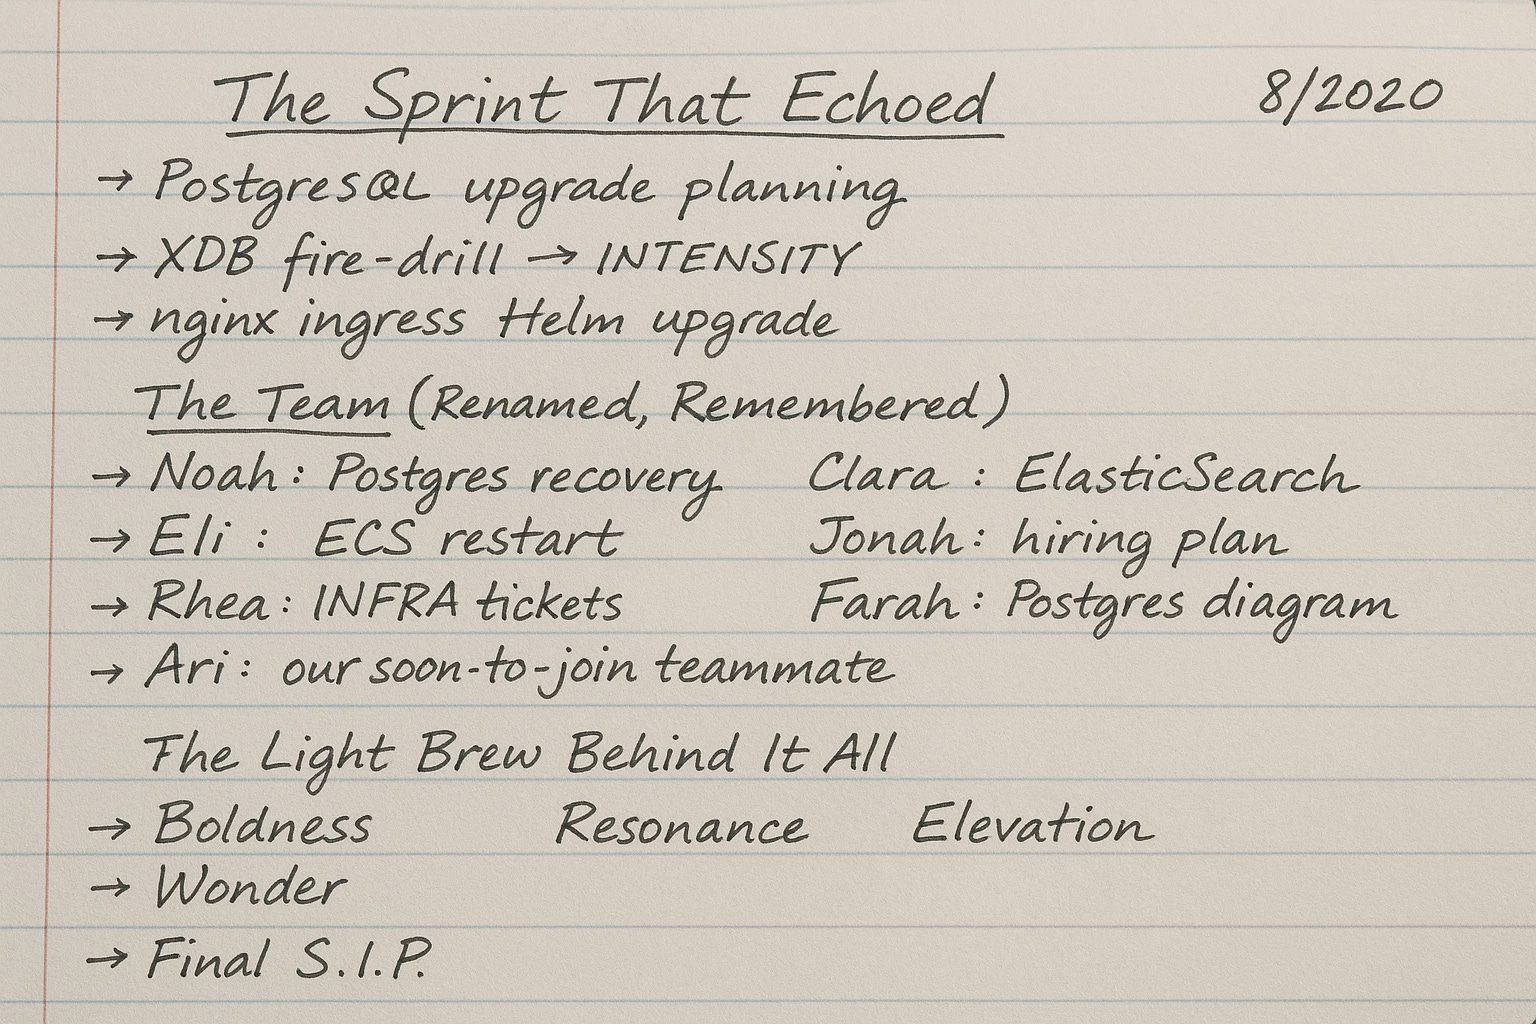 The Sprint That Echoed 8/2020
→ PostgresQL upgrade planning
→ XDB fire-drill → INTENSITY
→ nginx ingress Helm upgrade
The Team (Renamed, Remembered)
→ Noah: Postgres recovery Clara : ElasticSearch
→ Eli : ECS restart Jonah: hiring plan
→ Rhea: INFRA tickets Farah: Postgres diagram
→ Ari: our soon-to-join teammate
The Light Brew Behind It All
→ Boldness Resonance Elevation
→ Wonder
→ Final S.I.P.